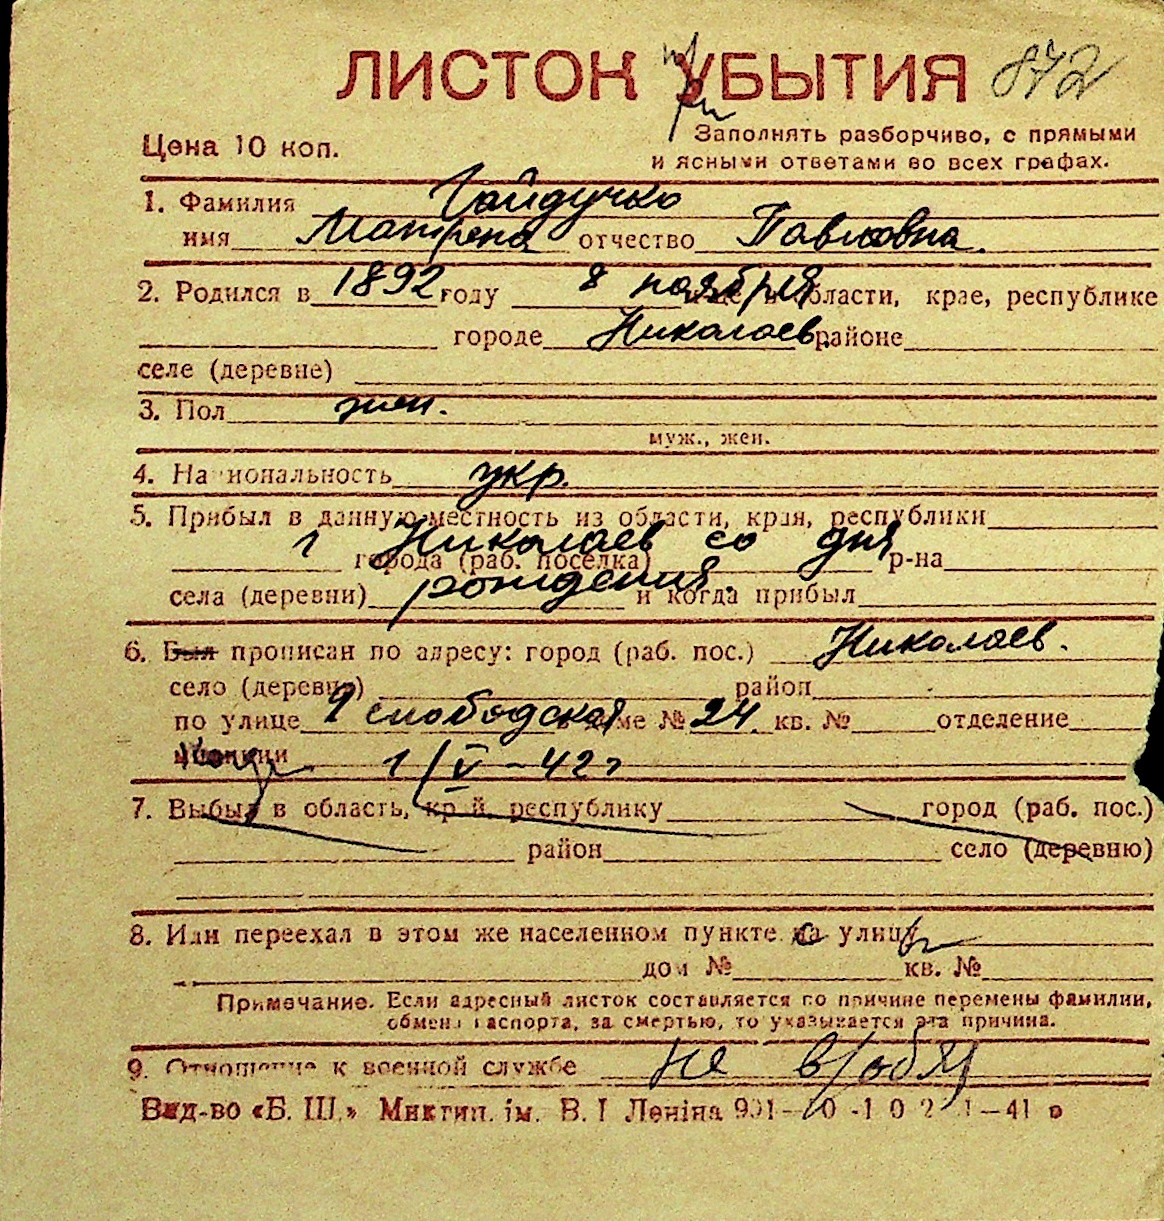 ЛИСТОК УБЫТИЯ 872
при
Цена 10 коп.
Заполнять разборчиво, с прямыми
и ясными ответами во всех графах.
1. Фамилия Гайдучко
имя Матрена отчество Павловна.
2. Родился в 1892 году 8 ноября области, крае, республике
городе Николаев. районе
селе (деревне)
3. Пол жен.
муж., жен.
4. Национальность укр.
5. Прибыл в данную местность из области, края, республики
г Николаев со дня
города (раб. поселка) р-на
села (деревни) рождения. и когда прибыл
6. Был прописан по адресу: город (раб. пос.) Николаев.
село (деревня) район
по улице слободская доме № 24 кв. № отделение
милиции 1/V-42 г
7. Выбыл в область, край, республику город (раб. пос.)
район село (деревню)
8. Или переехал в этом же населенном пункте на улицу
дом № кв. №
Примечание. Если адресный листок составляется по причине перемены фамилии,
обмена паспорта, за смертью, то указывается эта причина.
9. Отношение к военной службе не в/обяз
Вид-во «Б. Ш.» Миктип. ім. В. І Леніна